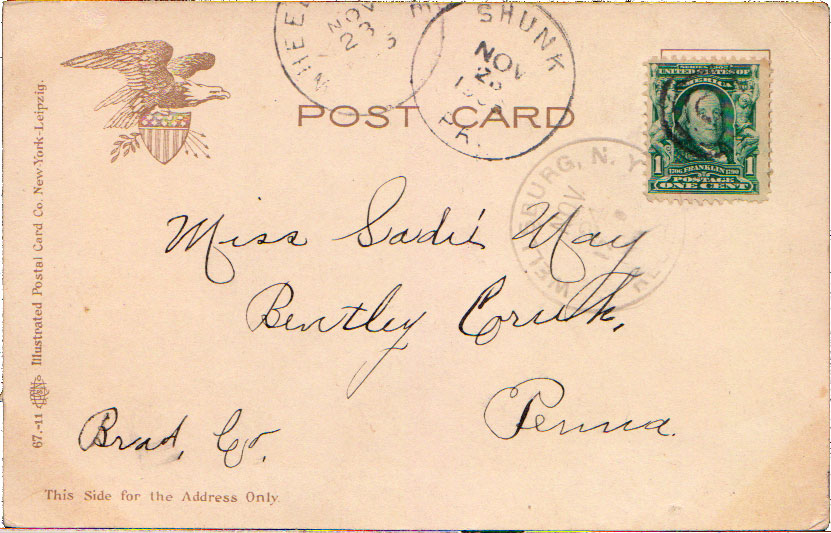 POST CARD
SHUNK
NOV
23
PA.
WHEEL
NOV
23
SERIES 1902
UNITED STATES OF AMERICA
1 1706 FRANKLIN 1790 1
POSTAGE
ONE CENT
WELLSBURG, N. Y.
NOV
REC'D
Miss Sadie May
Bentley Creek,
Penna.
Brad, Co.
This Side for the Address Only.
67.-11 Illustrated Postal Card Co. New-York-Leipzig.